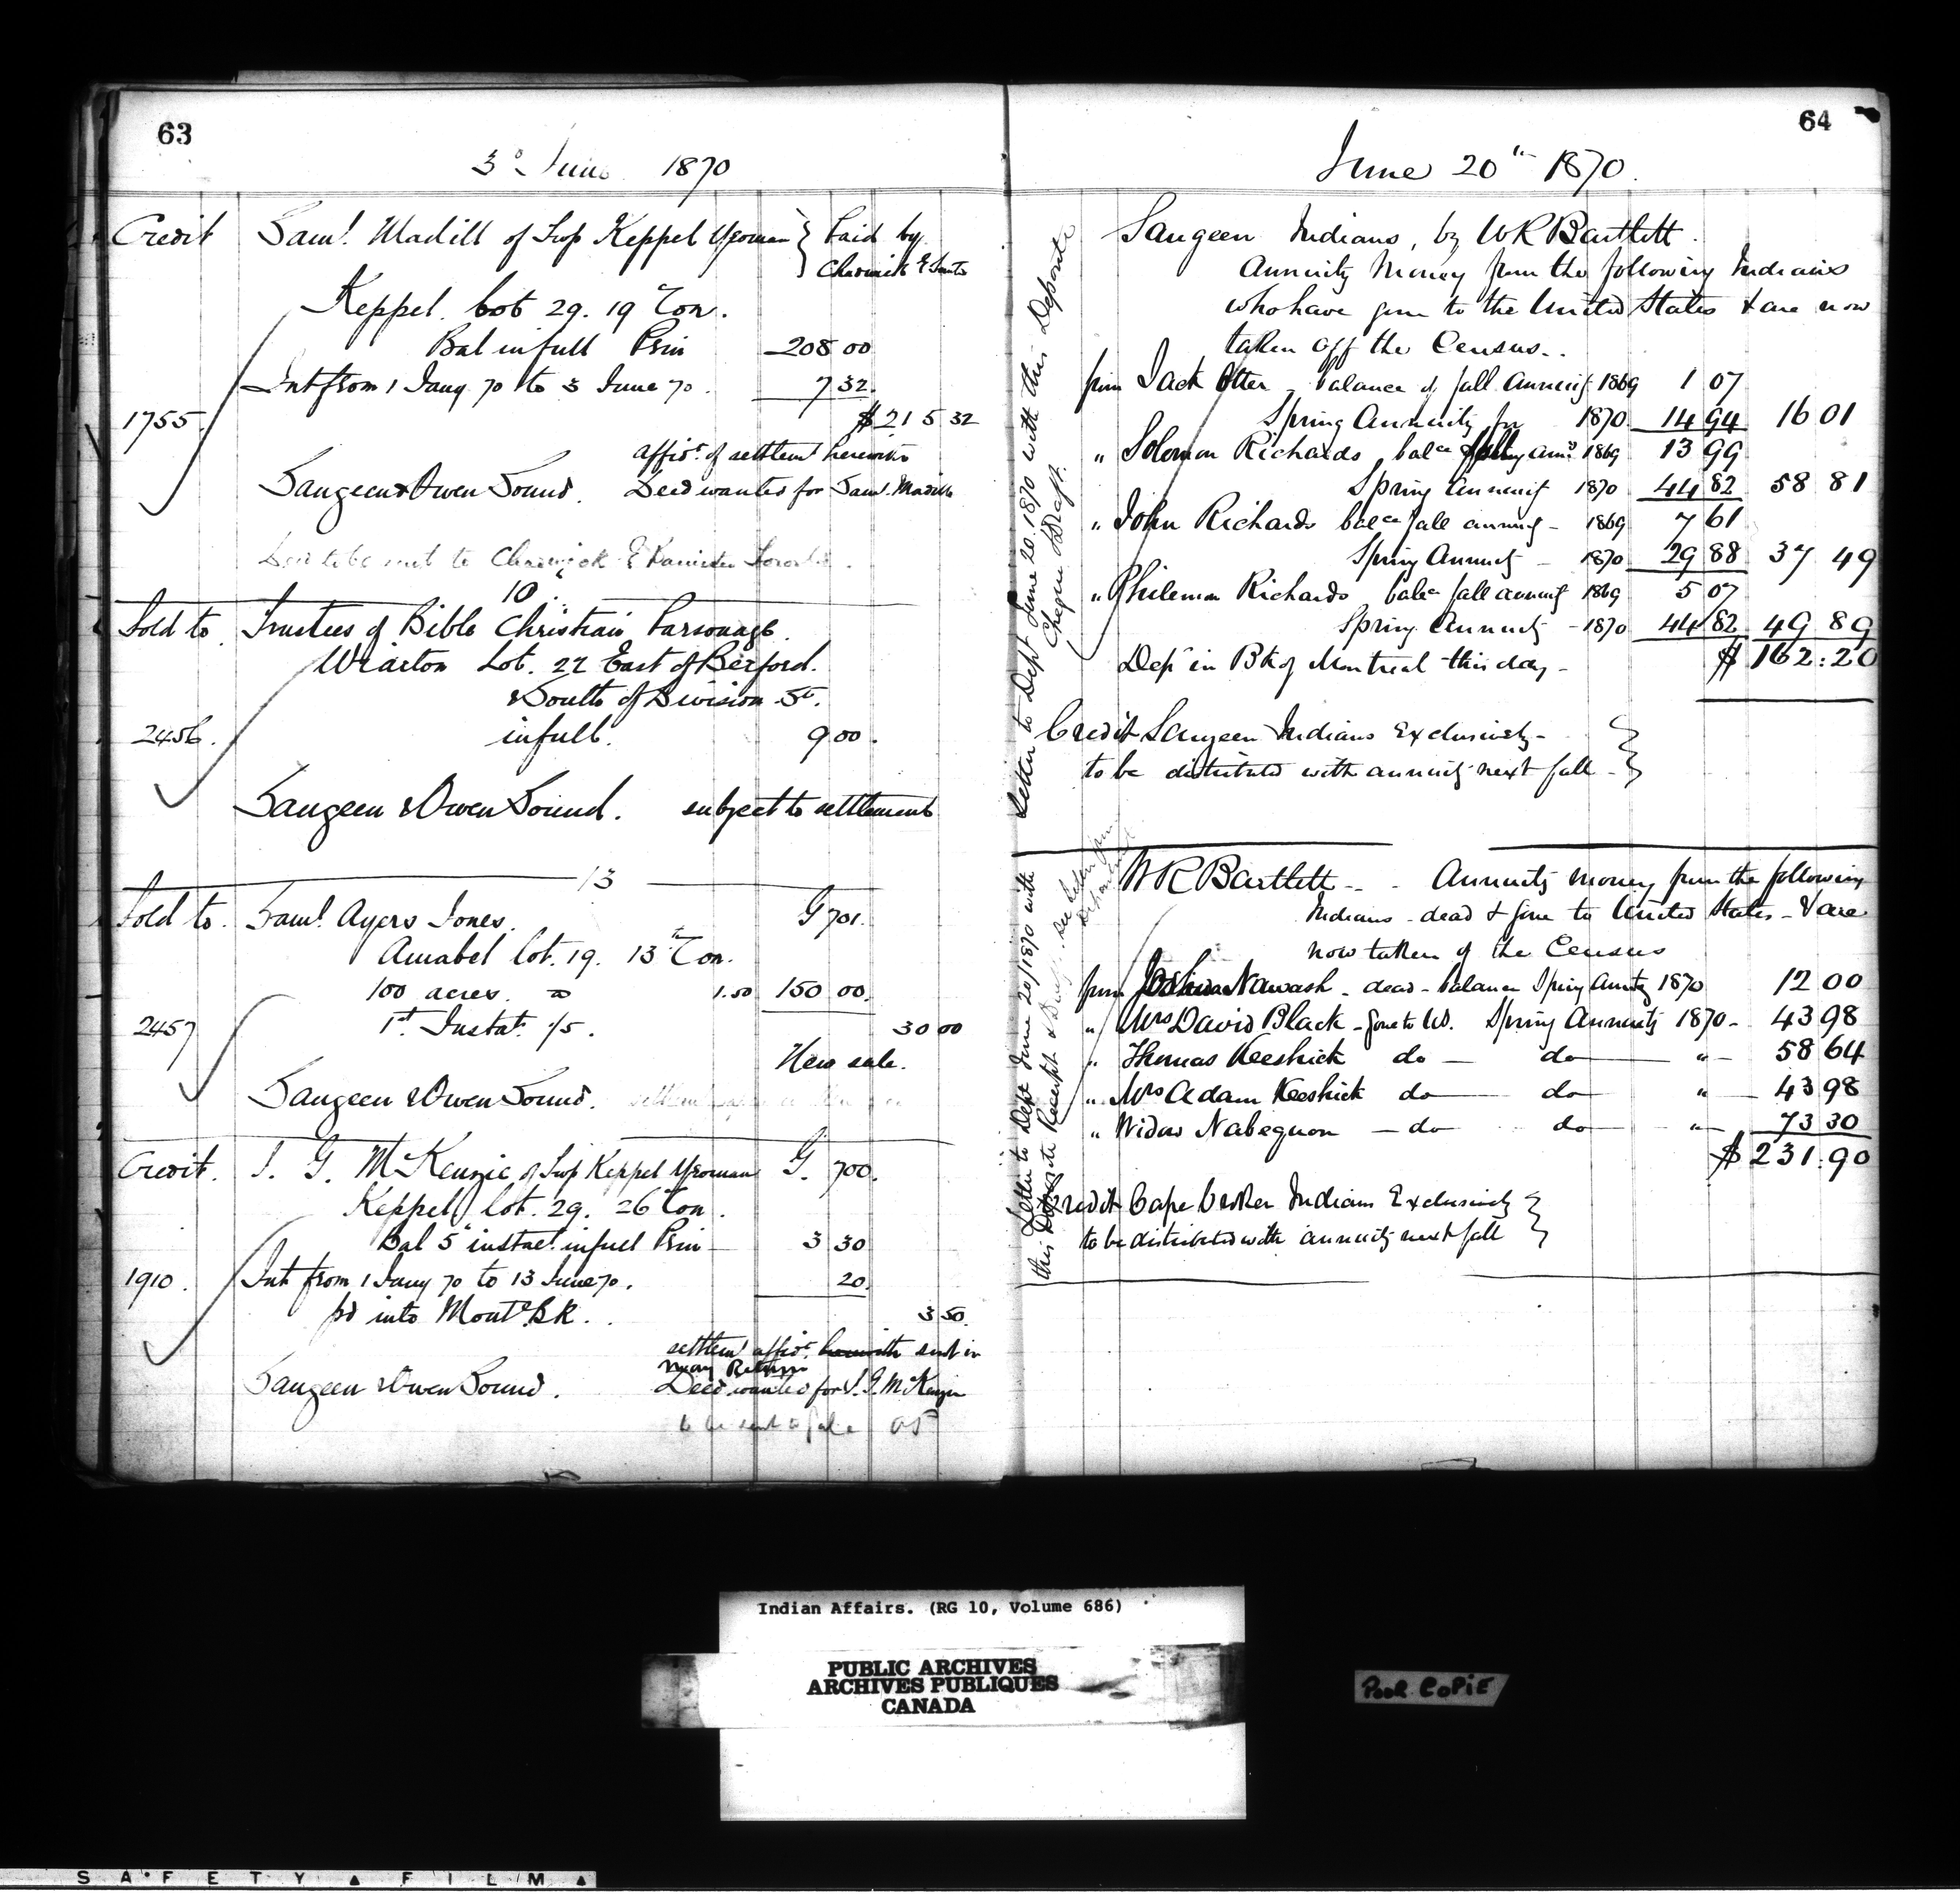 63
3d June 1870
Credit Saml. Madill of Twp Keppel Yeoman } Paid by
Keppel. Lot 29. 19 Con.
Bal in full Prin 208 00
Int from 1 Jany 70 to 3 June 70. 7 32
1755. $215 32
affidt. of settlemt herewith
Saugeen & Owen Sound. Deed wanted for Saml. Madill
Deed to be sent to
10
Sold to Trustees of Bible Christian Parsonage.
Wiarton Lot. 22 East of Berford.
& South of Division St.
2456. in full. 9 00.
Saugeen & Owen Sound. subject to settlement
13
Sold to. Saml. Ayers Jones. G 701.
Amabel lot. 19. 13th Con.
100 acres. 1.50 150 00.
2457 1st Instalt. 1/5. 30 00
New sale.
Saugeen & Owen Sound.
Credit. J. G. McKenzie of Twp Keppel Yeoman G. 700.
Keppel lot. 29. 26 Con.
Bal 5th instalt. in full Prin 3 30
1910. Int from 1 Jany 70 to 13 June 70. 20.
pd into Montl. BK. 3 50.
settlemt affidt. herewith sent in
may Return
Saugeen & Owen Sound. Deed wanted for J. G. McKenzie
to be sent to
64
June 20th 1870.
Saugeen Indians, by W R Bartlett.
Annuity Money from the following Indians
who have gone to the United States & are now
taken off the Census..
from Jack Otter - balance of fall Annuity 1869 1 07
Spring Annuity for 1870. 14 94 16 01
" Solomon Richards balce fall anny 1869 13 99
Spring Annuity 1870 44 82 58 81
" John Richards balce fall annuity - 1869 7 61
Spring Annuity - 1870 29 88 37 49
" Philemon Richards balce fall annuity 1869 5 07
Spring Annuity - 1870 44 82 49 89
Dept in Bk of Montreal this day - $ 162:20
Credit Saugeen Indians Exclusively -
to be distributed with annuity next fall -
Letter to Dept June 20. 1870 with this Deposite
Cheque & Draft.
W R Bartlett - - Annuity money from the following
Indians - dead & gone to United States - & are
now taken of the Census
from Joshua Nawash - dead - balance Spring Annuity 1870 12 00
" Mrs David Black - gone to US. Spring Annuity 1870 - 43 98
" Thomas Keeshick do - do - " - 58 64
" Mrs Adam Keeshick do - do - " - 43 98
" Widow Nabequon - do - do - " - 73 30
$ 231.90
Credit Cape Croker Indians Exclusively
to be distributed with annuity next fall
Letter to Dept June 20/1870 with
this Deposite Receipt &
see letter from
Department
Indian Affairs. (RG 10, Volume 686)
PUBLIC ARCHIVES
ARCHIVES PUBLIQUES
CANADA
POOR COPIE
SAFETY FILM